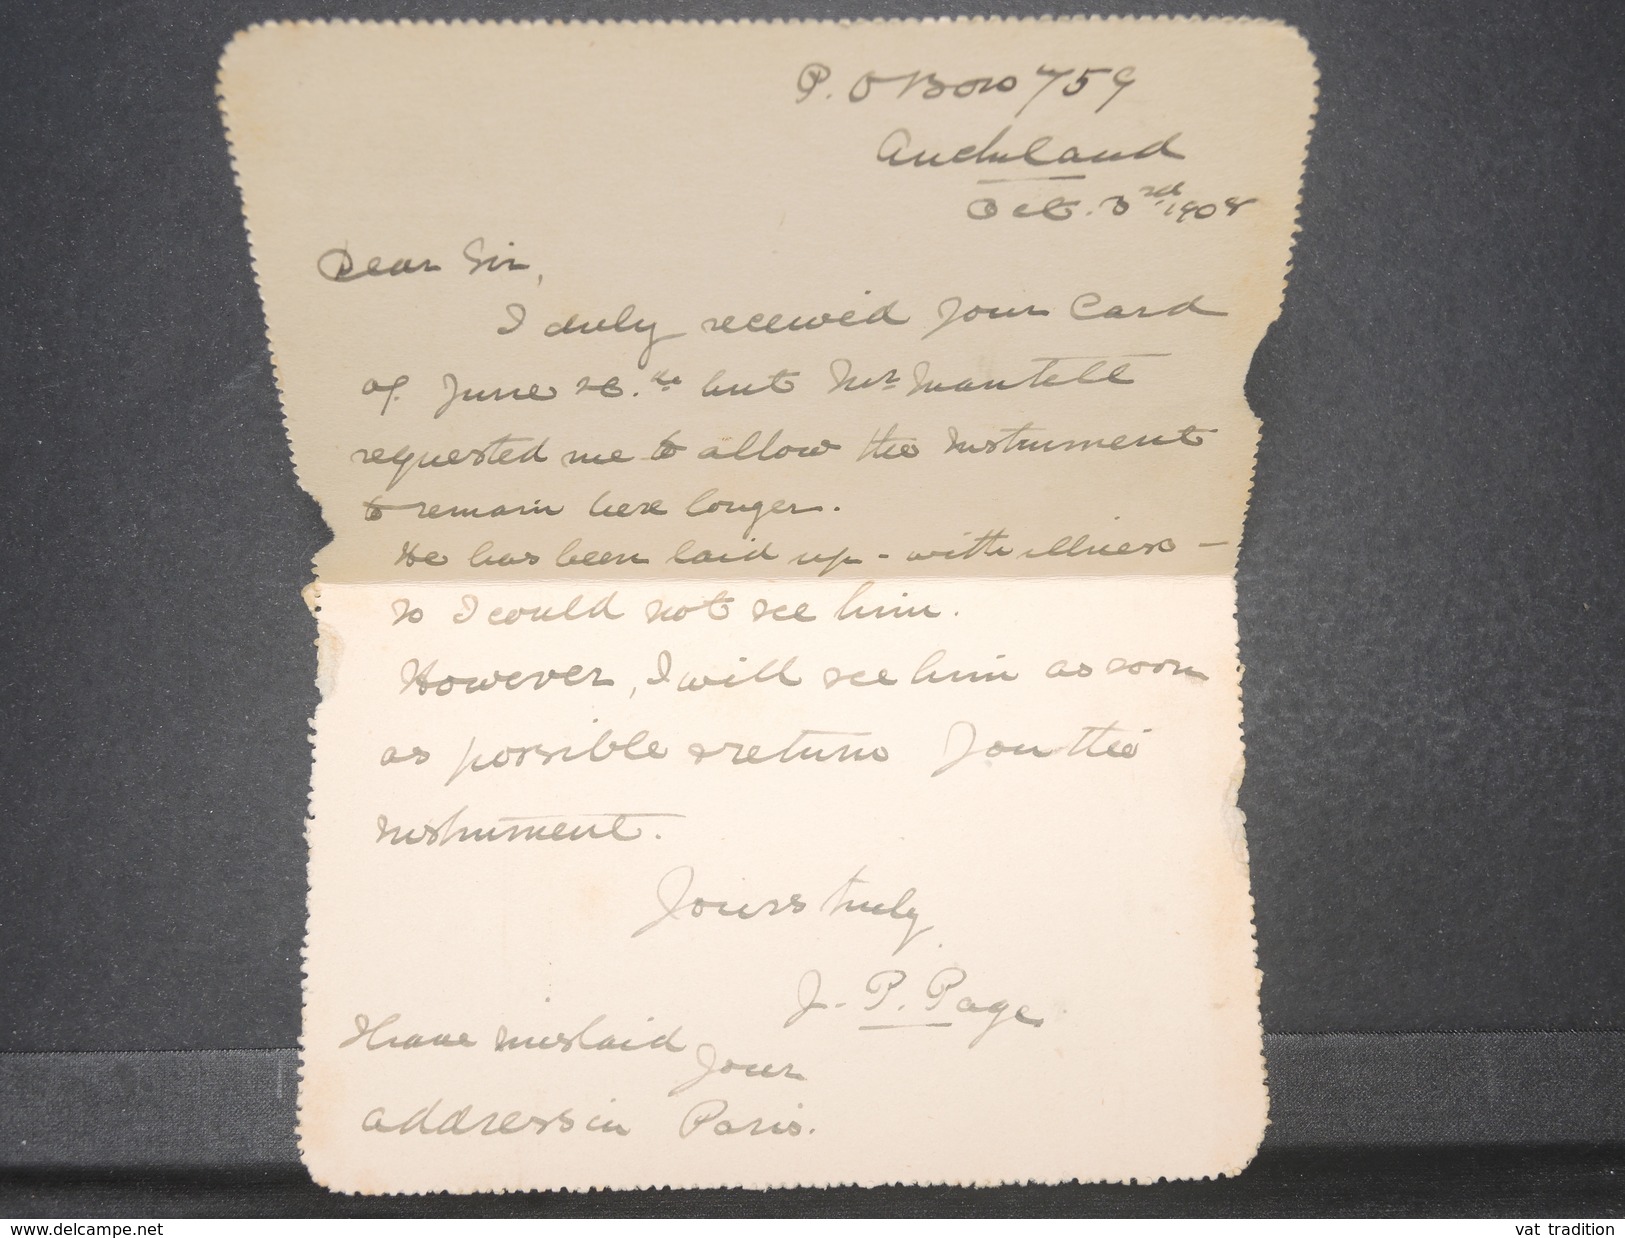 P. O Box 759
Auckland
Oct. 3rd 1908
Dear Sir,
I duly received your Card
of June but Mr Mantell
requested me to allow the instrument
to remain here longer.
He has been laid up - with illness -
so I could not see him.
However, I will see him as soon
as possible & return you the
instrument.
Yours truly
J. P. Page
Have mislaid your
address in Paris.
www.delcampe.net
vat tradition